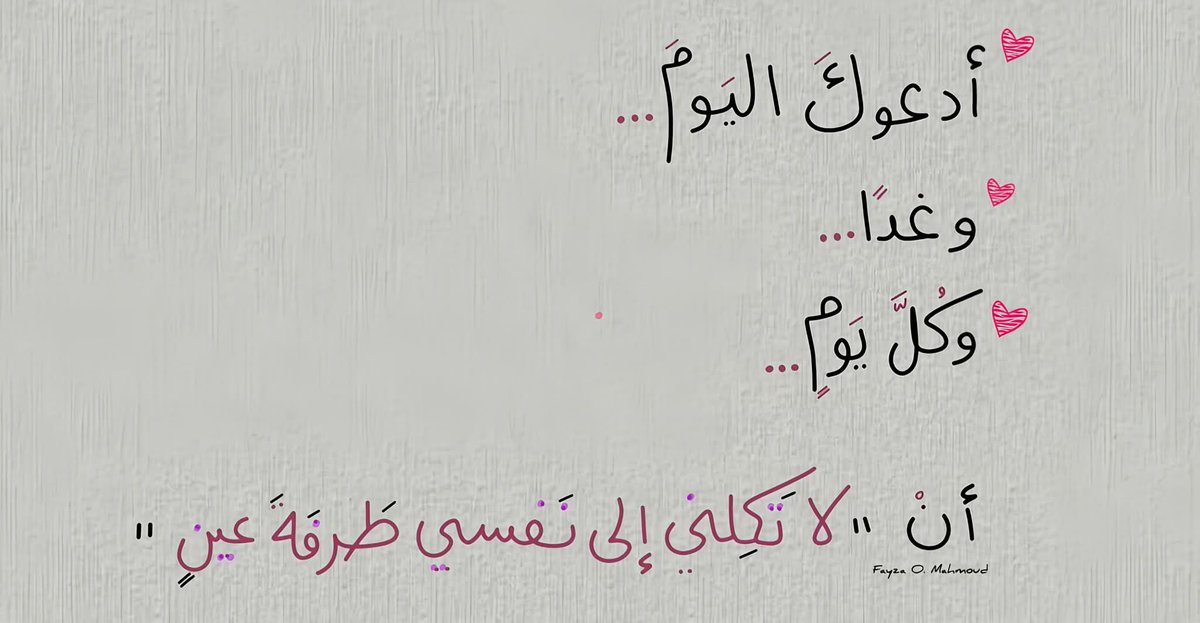 أدعوكَ اليَومَ...
وغدًا...
وكُلَّ يَومٍ...
أنْ "لا تَكِلني إلى نَفسي طَرفَةً عينٍ"
Fayza O. Mahmoud